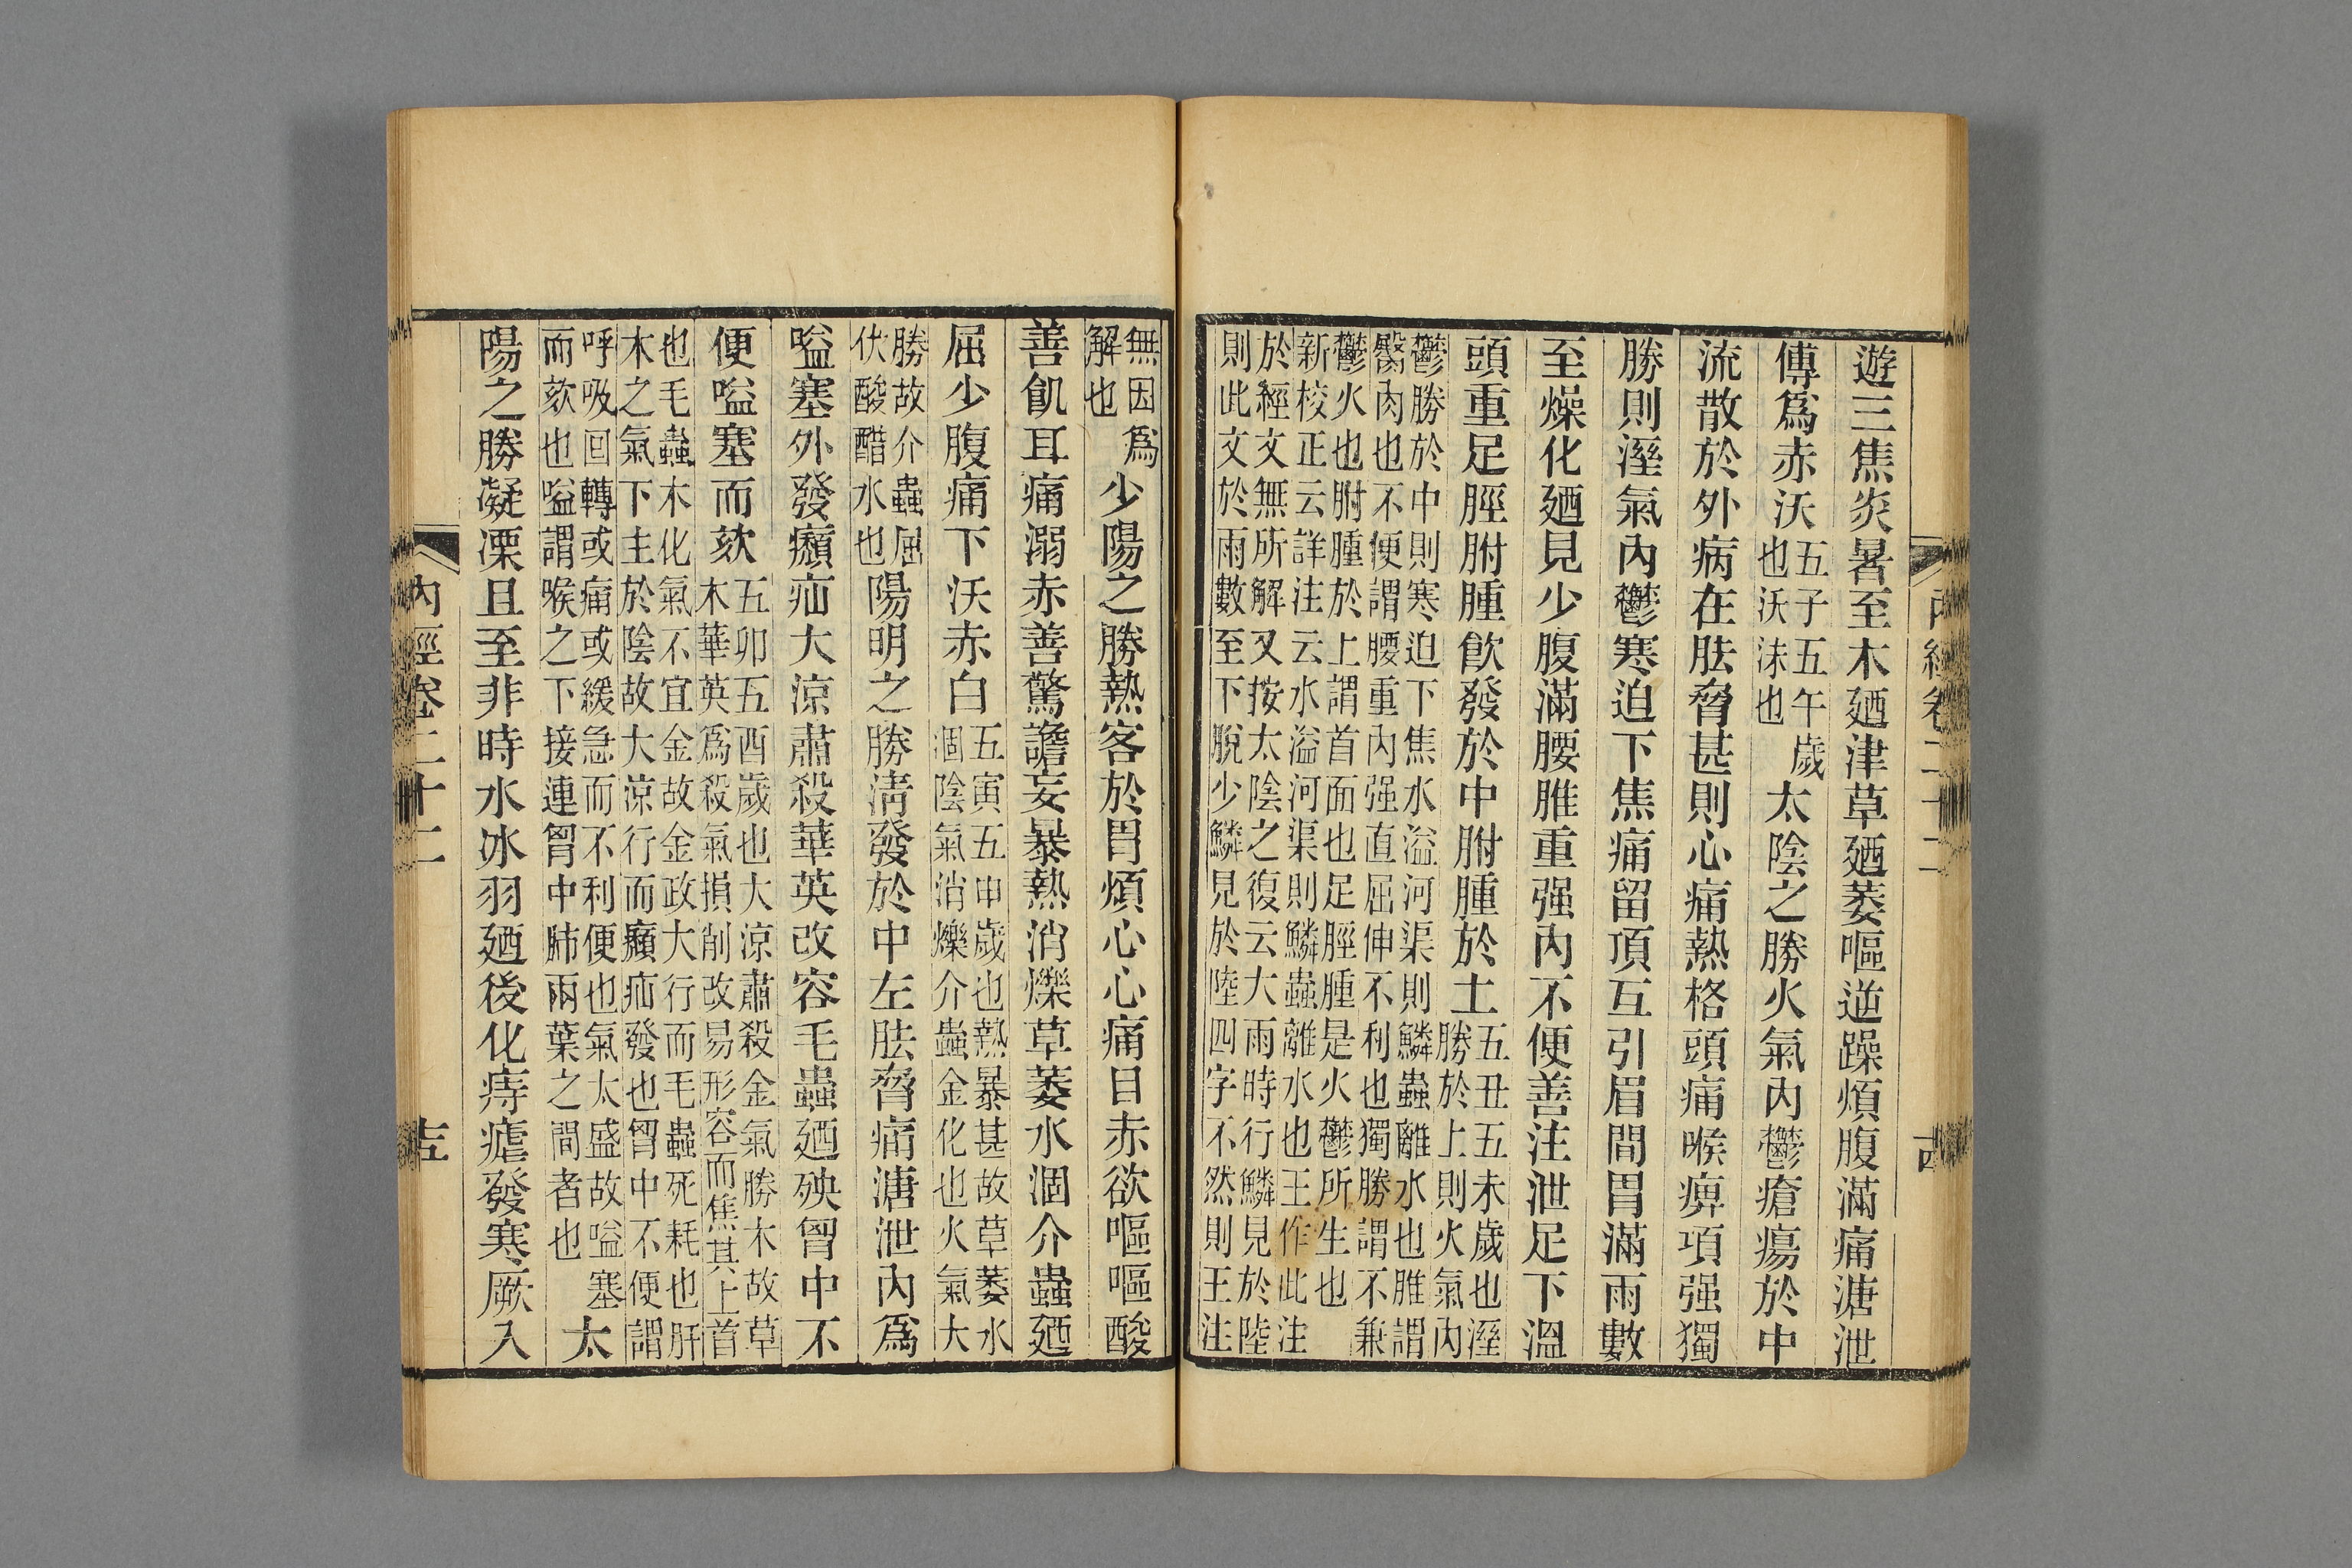 遊三焦炎暑至木廼津草廼萎嘔逆躁煩腹滿痛溏泄
傳爲赤沃五子五午歲也沃沬也太陰之勝火氣內鬱瘡瘍於中
流散於外病在胠脅甚則心痛熱格頭痛喉痹項强獨
勝則溼氣內鬱寒迫下焦痛留頂互引眉間胃滿雨數
至燥化廼見少腹滿腰脽重强內不便善注泄足下溫
頭重足脛胕腫飮發於中胕腫於土五丑五未歲也溼勝於上則火氣內
鬱勝於中則寒迫下焦水溢河渠則鱗蟲離水也脽謂
臋肉也不便謂腰重內强直屈伸不利也獨勝謂不兼
鬱火也胕腫於上謂首面也足脛腫是火鬱所生也
新校正云詳注云水溢河渠則鱗蟲離水也王作此注
於經文無所解又按太陰之復云大雨時行鱗見於陸
則此文於雨數至下脫少鱗見於陸四字不然則王注
無因爲解也少陽之勝熱客於胃煩心心痛目赤欲嘔嘔酸
善飢耳痛溺赤善驚譫妄暴熱消爍草萎水涸介蟲廼
屈少腹痛下沃赤白五寅五申歲也熱暴甚故草萎水涸陰氣消爍介蟲金化也火氣大
勝故介蟲屈伏酸醋水也陽明之勝淸發於中左胠脅痛溏泄內爲
嗌塞外發㿗疝大涼肅殺華英改容毛蟲廼殃胷中不
便嗌塞而欬五卯五酉歲也大涼肅殺金氣勝木故草木華英爲殺氣損削改易形容而焦其上首
也毛蟲木化氣不宜金故金政大行而毛蟲死耗也肝
木之氣下主於陰故大涼行而㿗疝發也胷中不便謂
呼吸回轉或痛或緩急而不利便也氣太盛故嗌塞
而欬也嗌謂喉之下接連胷中肺兩葉之間者也太
陽之勝凝凓且至非時水冰羽廼後化痔瘧發寒厥入
內經卷二十二